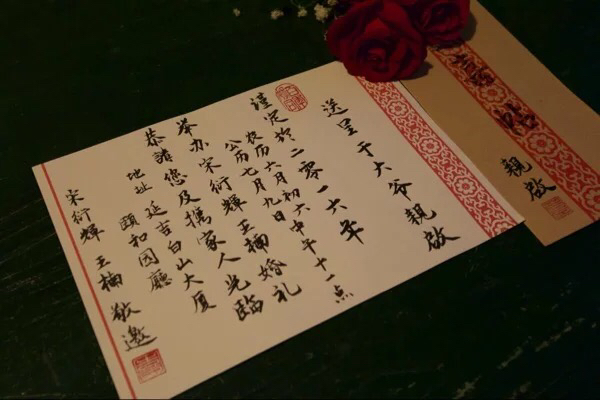 送呈于大爷親啟
謹定於二零一六年
农历六月初六中午十一点
公历七月九日
举办宋衍輝王楠婚礼
恭請您及攜家人光臨
地址 延吉白山大厦
颐和园廳
宋衍輝 王楠 敬邀
喜帖
親啟